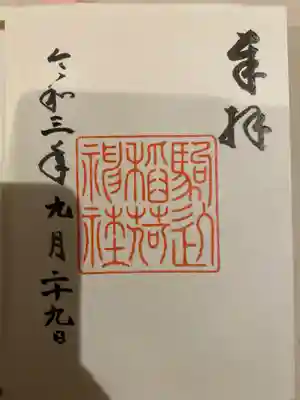 奉拝
駒込
稲荷
神社
令和三年九月二十九日